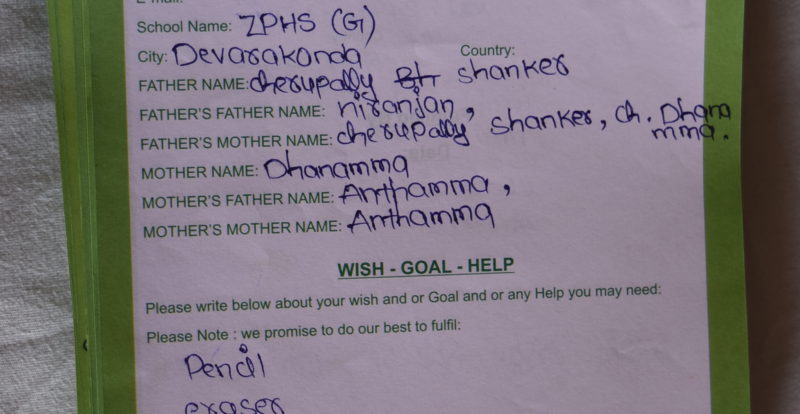 School Name: ZPHS (G)
City: Devarakonda Country:
FATHER NAME: cherupally shanker
FATHER'S FATHER NAME: niranjan,
FATHER'S MOTHER NAME: cherupally shanker, ch. Dhana
mma.
MOTHER NAME: Dhanamma
MOTHER'S FATHER NAME: Anthamma,
MOTHER'S MOTHER NAME: Anthamma
WISH - GOAL - HELP
Please write below about your wish and or Goal and or any Help you may need:
Please Note : we promise to do our best to fulfil:
Pencil
eraser